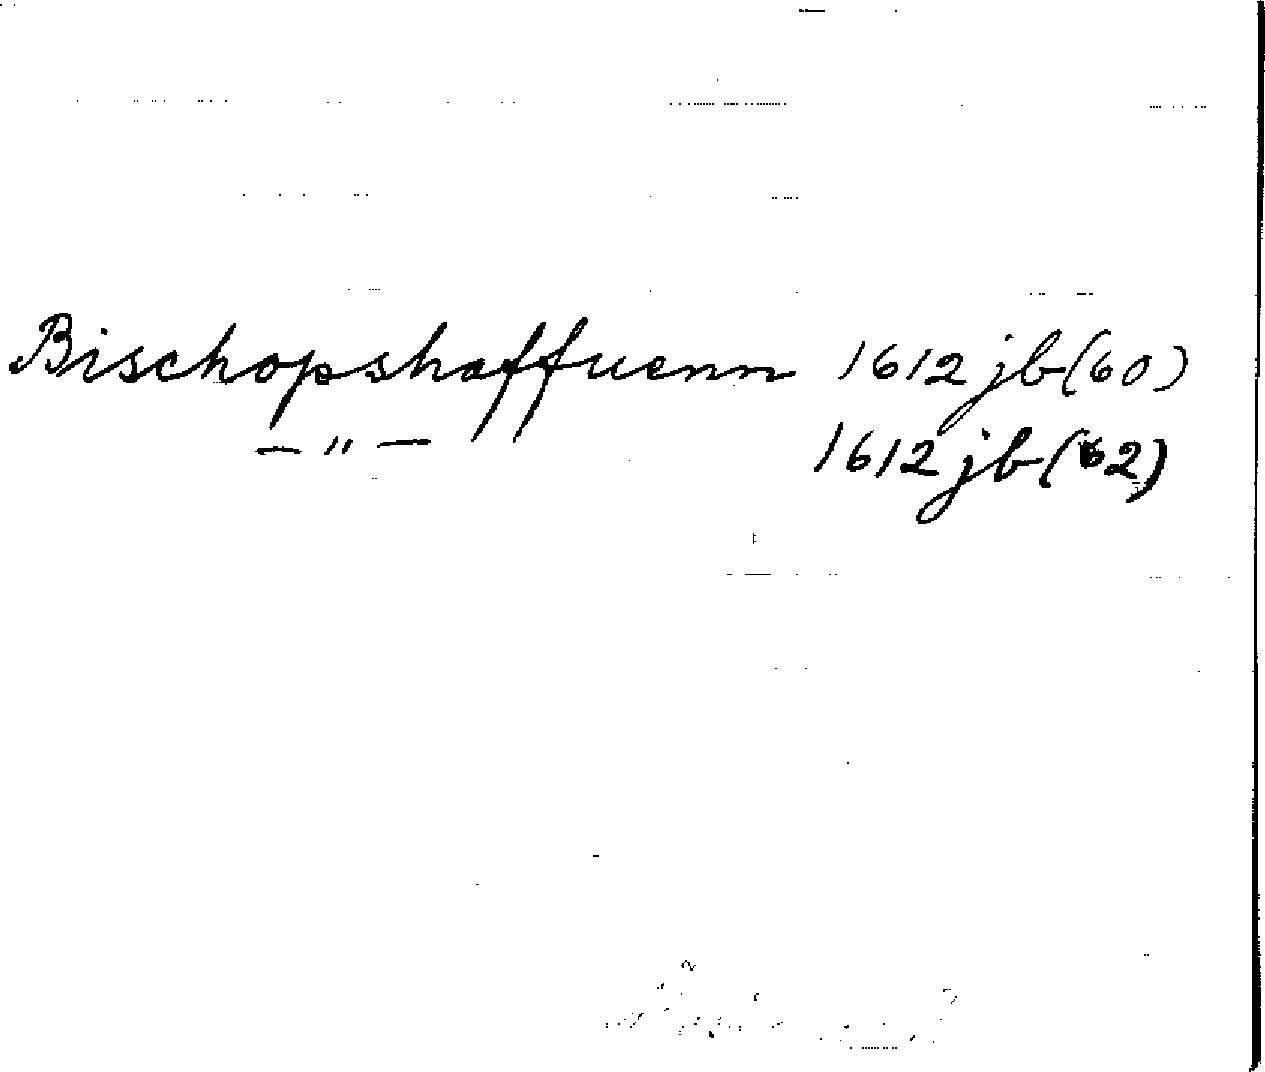 Bischopshaffuenn 1612 jb(60)
— " — 1612 jb(62)